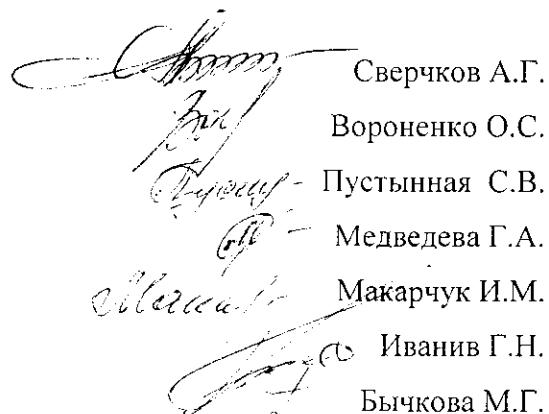 Сверчков А.Г.
Вороненко О.С.
Пустынная С.В.
Медведева Г.А.
Макарчук И.М.
Иванив Г.Н.
Бычкова М.Г.